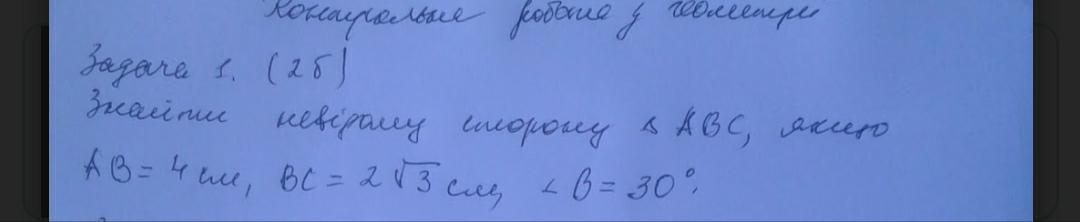 Контрольна робота з геометрії
Задача 1. (2б)
Знайти невідому сторону △ ABC, якщо
AB = 4 см, BC = 2√3 см, ∠ B = 30°.